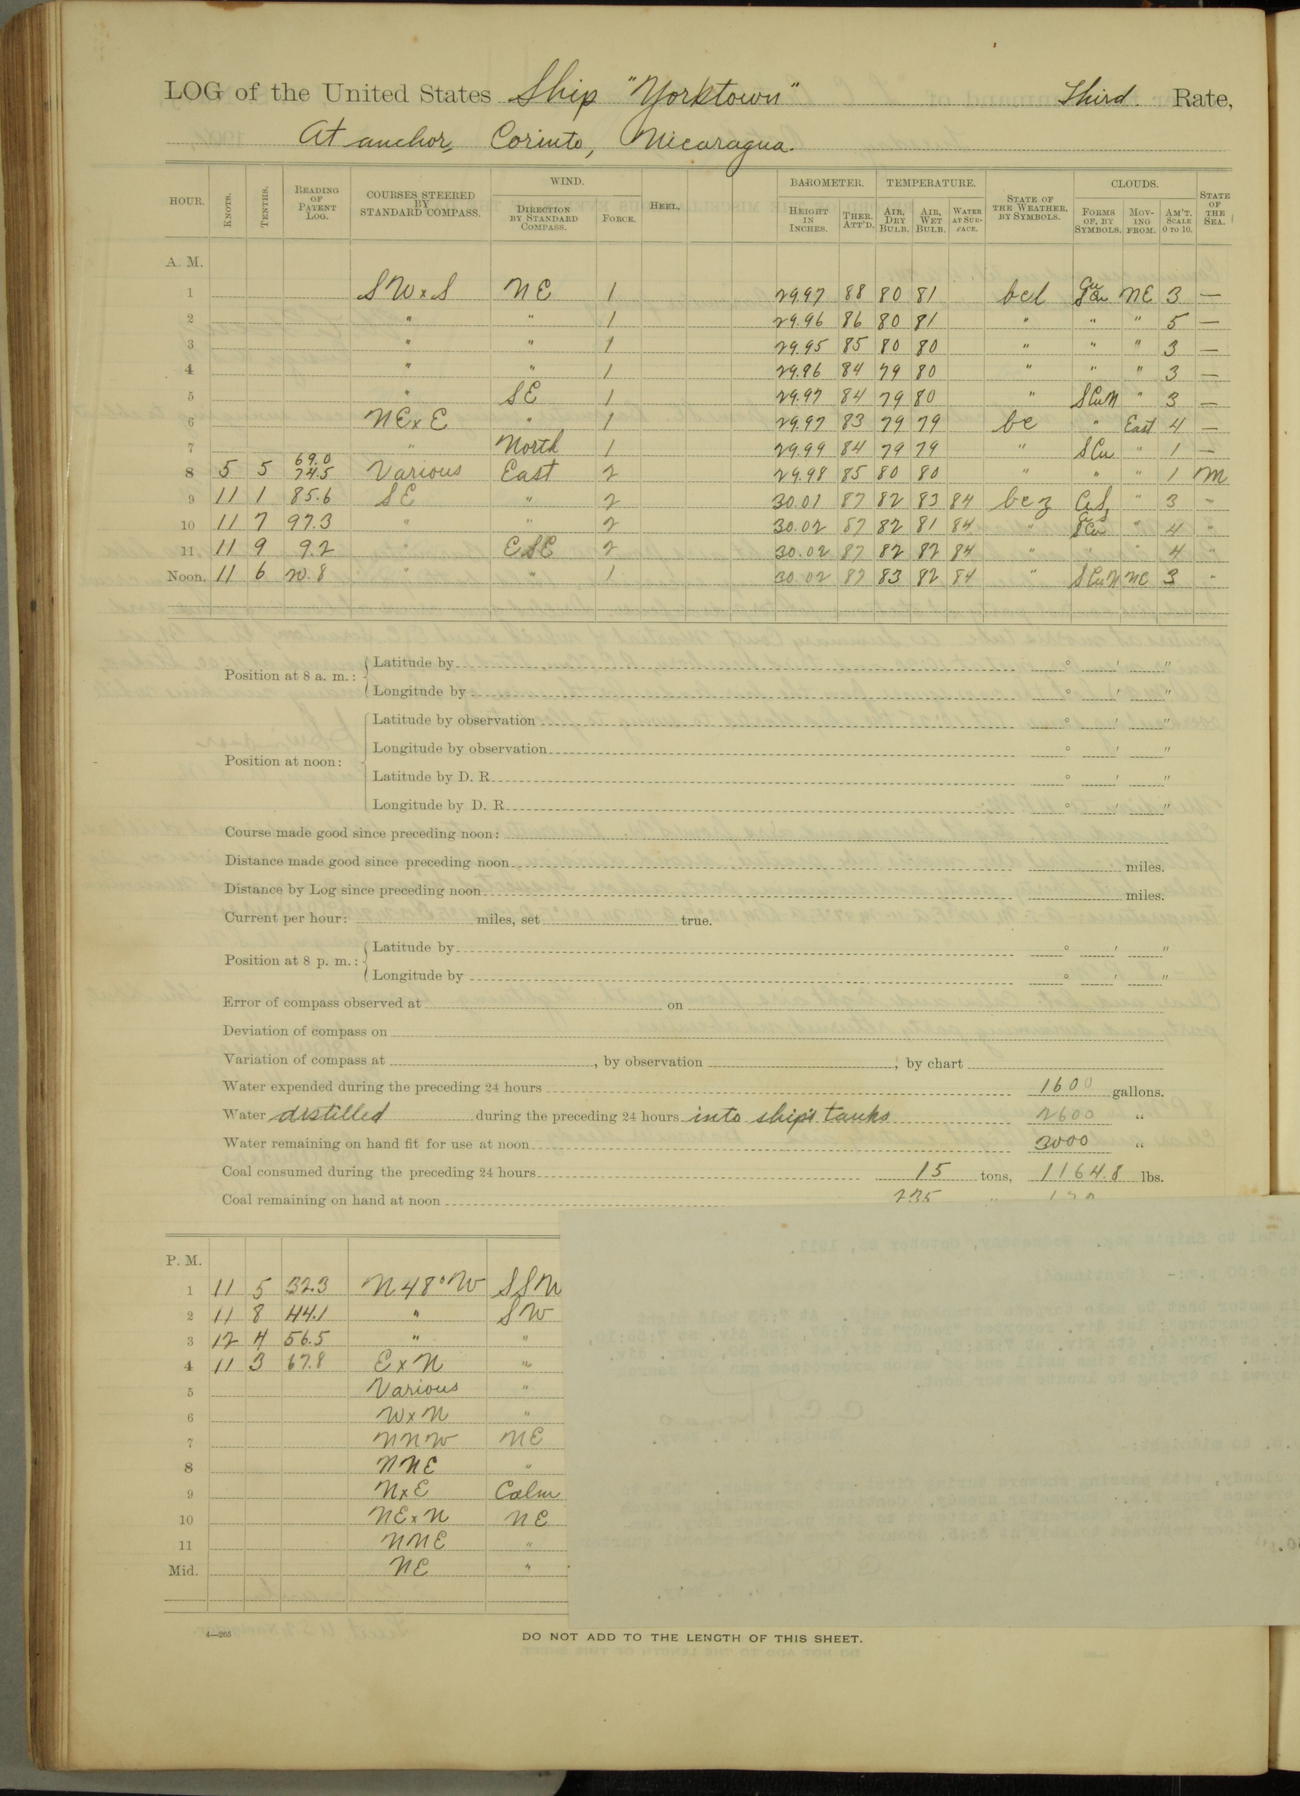 LOG of the United States Ship "Yorktown" Third Rate,
At anchor, Corinto, Nicaragua.
HOUR. KNOTS. TENTHS. READING OF PATENT LOG. COURSES STEERED BY STANDARD COMPASS. WIND. DIRECTION BY STANDARD COMPASS. FORCE. HEEL. BAROMETER. HEIGHT IN INCHES. THER. ATT'D. TEMPERATURE. AIR, DRY BULB. AIR, WET BULB. WATER AT SURFACE. STATE OF THE WEATHER, BY SYMBOLS. CLOUDS. FORMS OF, BY SYMBOLS. MOVING FROM. AM'T. SCALE 0 TO 10. STATE OF THE SEA.
A. M.
1 SWxS NE 1 29.97 88 80 81 bcl NE 3 —
2 " " 1 29.96 86 80 81 " " " 5 —
3 " " 1 29.95 85 80 80 " " " 3 —
4 " " 1 29.96 84 79 80 " " " 3 —
5 " SE 1 29.97 84 79 80 " SCuN " 3 —
6 NExE " 1 29.97 83 79 79 bc " East 4 —
7 " North 1 29.99 84 79 79 " SCu " 1 —
69.0
8 5 5 74.5 Various East 2 29.98 85 80 80 " " " 1 M
9 11 1 85.6 SE " 2 30.01 87 82 83 84 bcz " 3 "
10 11 7 97.3 " " 2 30.02 87 82 81 84 " " 4 "
11 11 9 9.2 " ESE 2 30.02 87 82 82 84 " " " 4 "
Noon. 11 6 20.8 " " 1 30.02 87 83 82 84 " SCuN NE 3 "
Position at 8 a. m.: Latitude by ° ' "
Longitude by ° ' "
Position at noon: Latitude by observation ° ' "
Longitude by observation ° ' "
Latitude by D. R. ° ' "
Longitude by D. R. ° ' "
Course made good since preceding noon:
Distance made good since preceding noon miles.
Distance by Log since preceding noon miles.
Current per hour: miles, set true.
Position at 8 p. m.: Latitude by ° ' "
Longitude by ° ' "
Error of compass observed at on
Deviation of compass on
Variation of compass at , by observation ; by chart
Water expended during the preceding 24 hours 1600 gallons.
Water distilled during the preceding 24 hours into ship's tanks 2600 "
Water remaining on hand fit for use at noon 3000 "
Coal consumed during the preceding 24 hours 15 tons, 1164.8 lbs.
Coal remaining on hand at noon 235 "
P. M.
1 11 5 32.3 N 48° W SSW
2 11 8 44.1 " SW
3 12 4 56.5 " "
4 11 3 67.8 ExN "
5 Various "
6 WxN "
7 NNW NE
8 NNE "
9 NxE Calm
10 NExN NE
11 NNE "
Mid. NE "
4—265
DO NOT ADD TO THE LENGTH OF THIS SHEET.